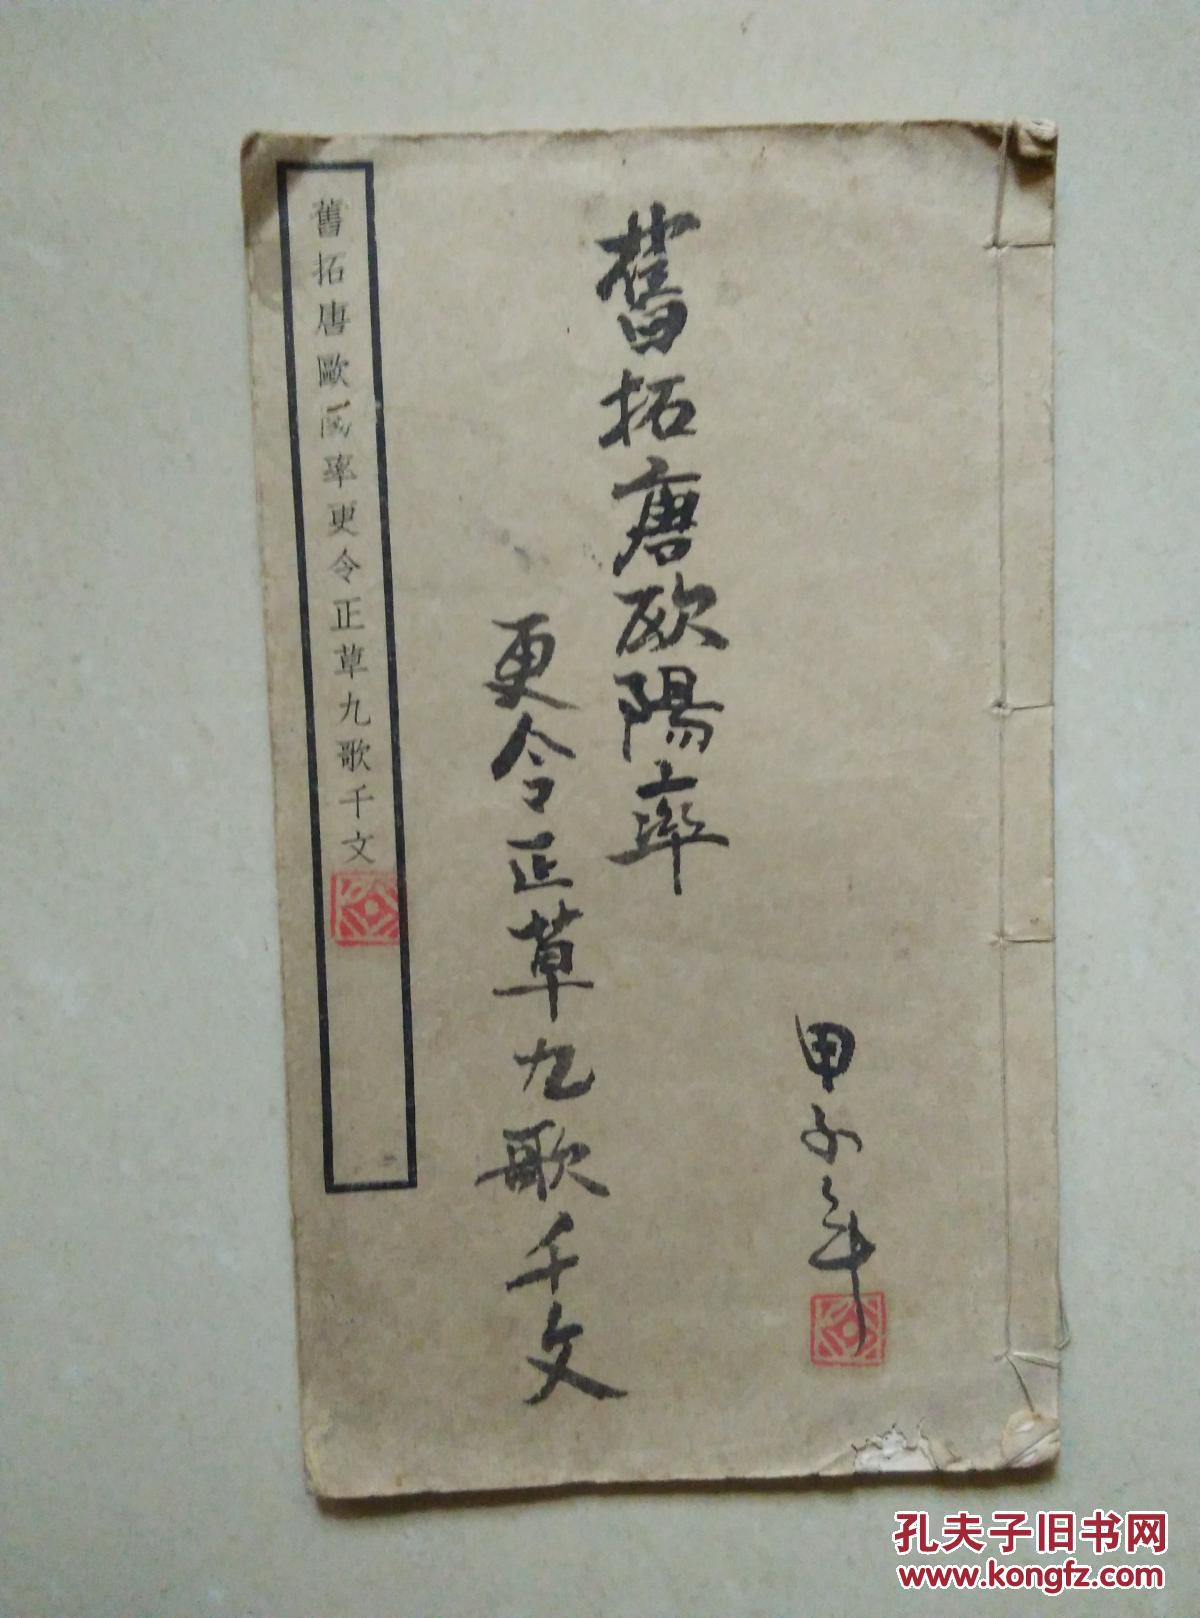 甲子年
舊拓唐欧陽率
更令正草九歌千文
舊拓唐歐率更令正草九歌千文
孔夫子旧书网
www.kongfz.com